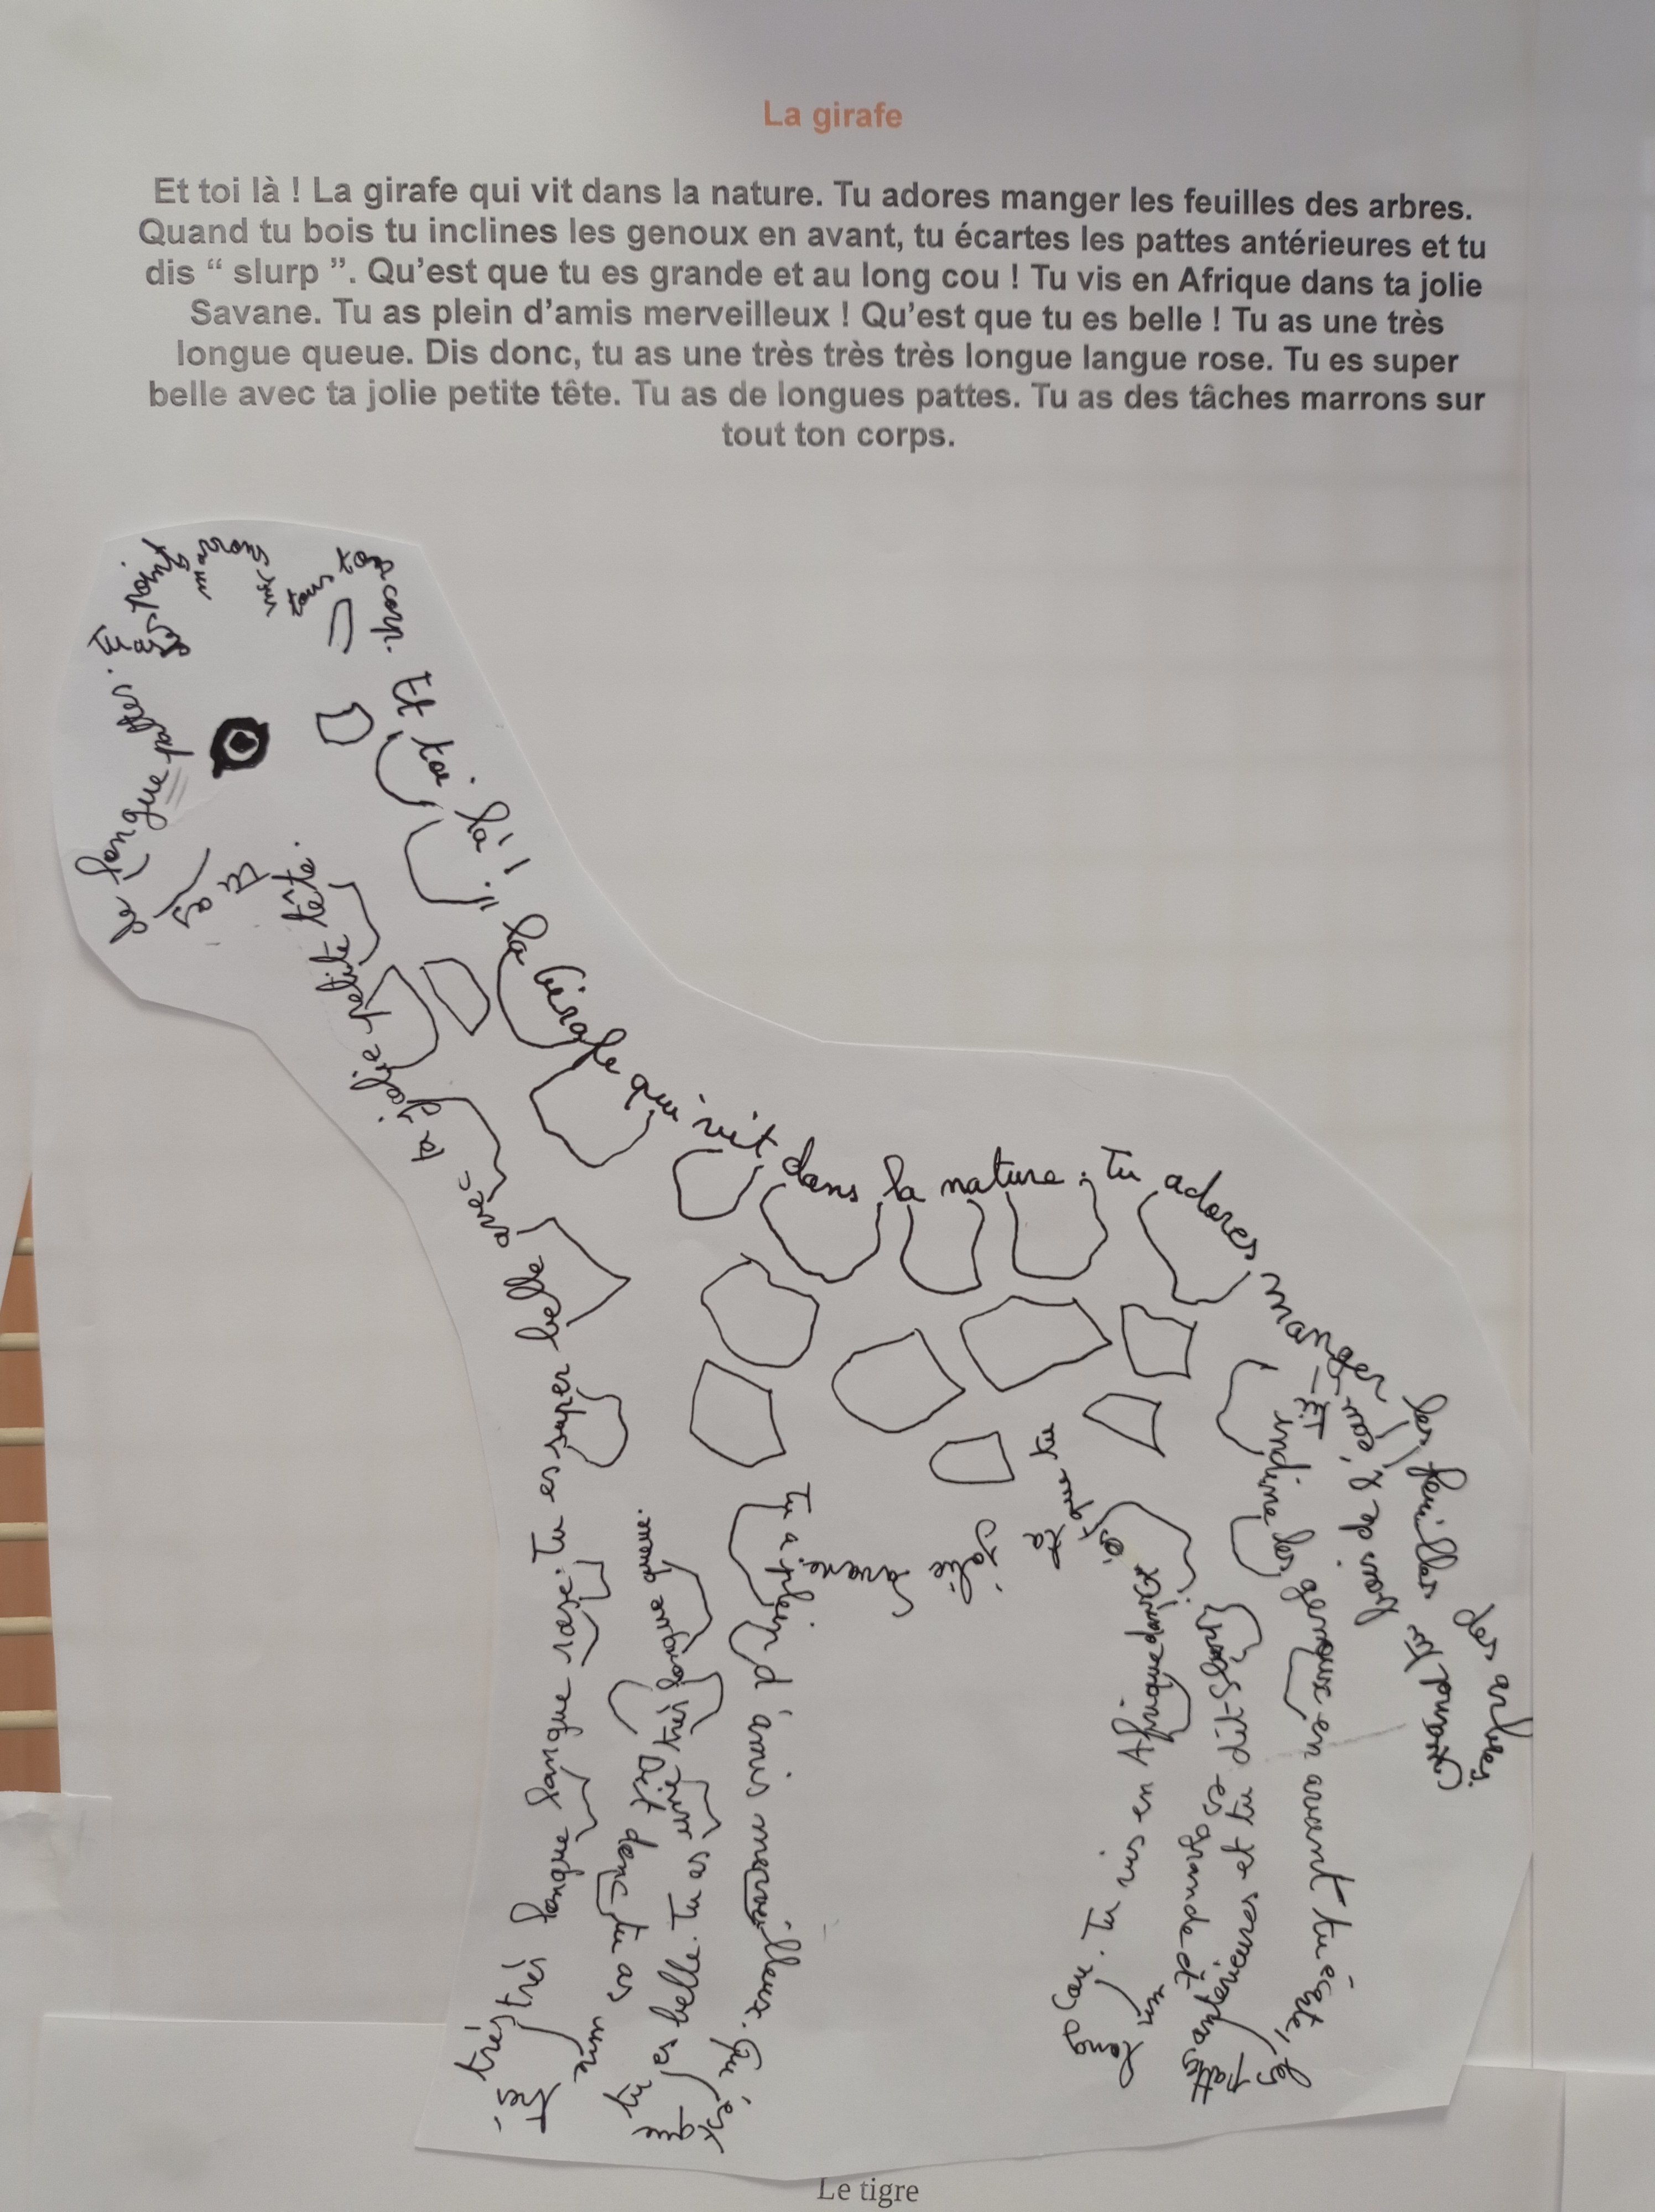 La girafe
Et toi là ! La girafe qui vit dans la nature. Tu adores manger les feuilles des arbres.
Quand tu bois tu inclines les genoux en avant, tu écartes les pattes antérieures et tu
dis “ slurp ”. Qu’est que tu es grande et au long cou ! Tu vis en Afrique dans ta jolie
Savane. Tu as plein d’amis merveilleux ! Qu’est que tu es belle ! Tu as une très
longue queue. Dis donc, tu as une très très très longue langue rose. Tu es super
belle avec ta jolie petite tête. Tu as de longues pattes. Tu as des tâches marrons sur
tout ton corps.
Et toi là ! la Girafe qui vit dans la nature. Tu adores manger les feuilles des arbres
Quand tu bois de l'eau, tu
incline les genoux en avant tu écarte, les
patt
et tu dit
es grande et
un
long cou. Tu vis en Afrique dans
ta
jolie
savane.
Tu a plein d'amis merveilleux. Qu'est
que
ty
es belle. Tu as une très longue queue.
Dit donc tu as une
très
très très longue langue rose. Tu es super belle avec ta jolie petite tête.
Tu
as
de longue pattes.
Tu
as
sur
tout
corp.
Le tigre